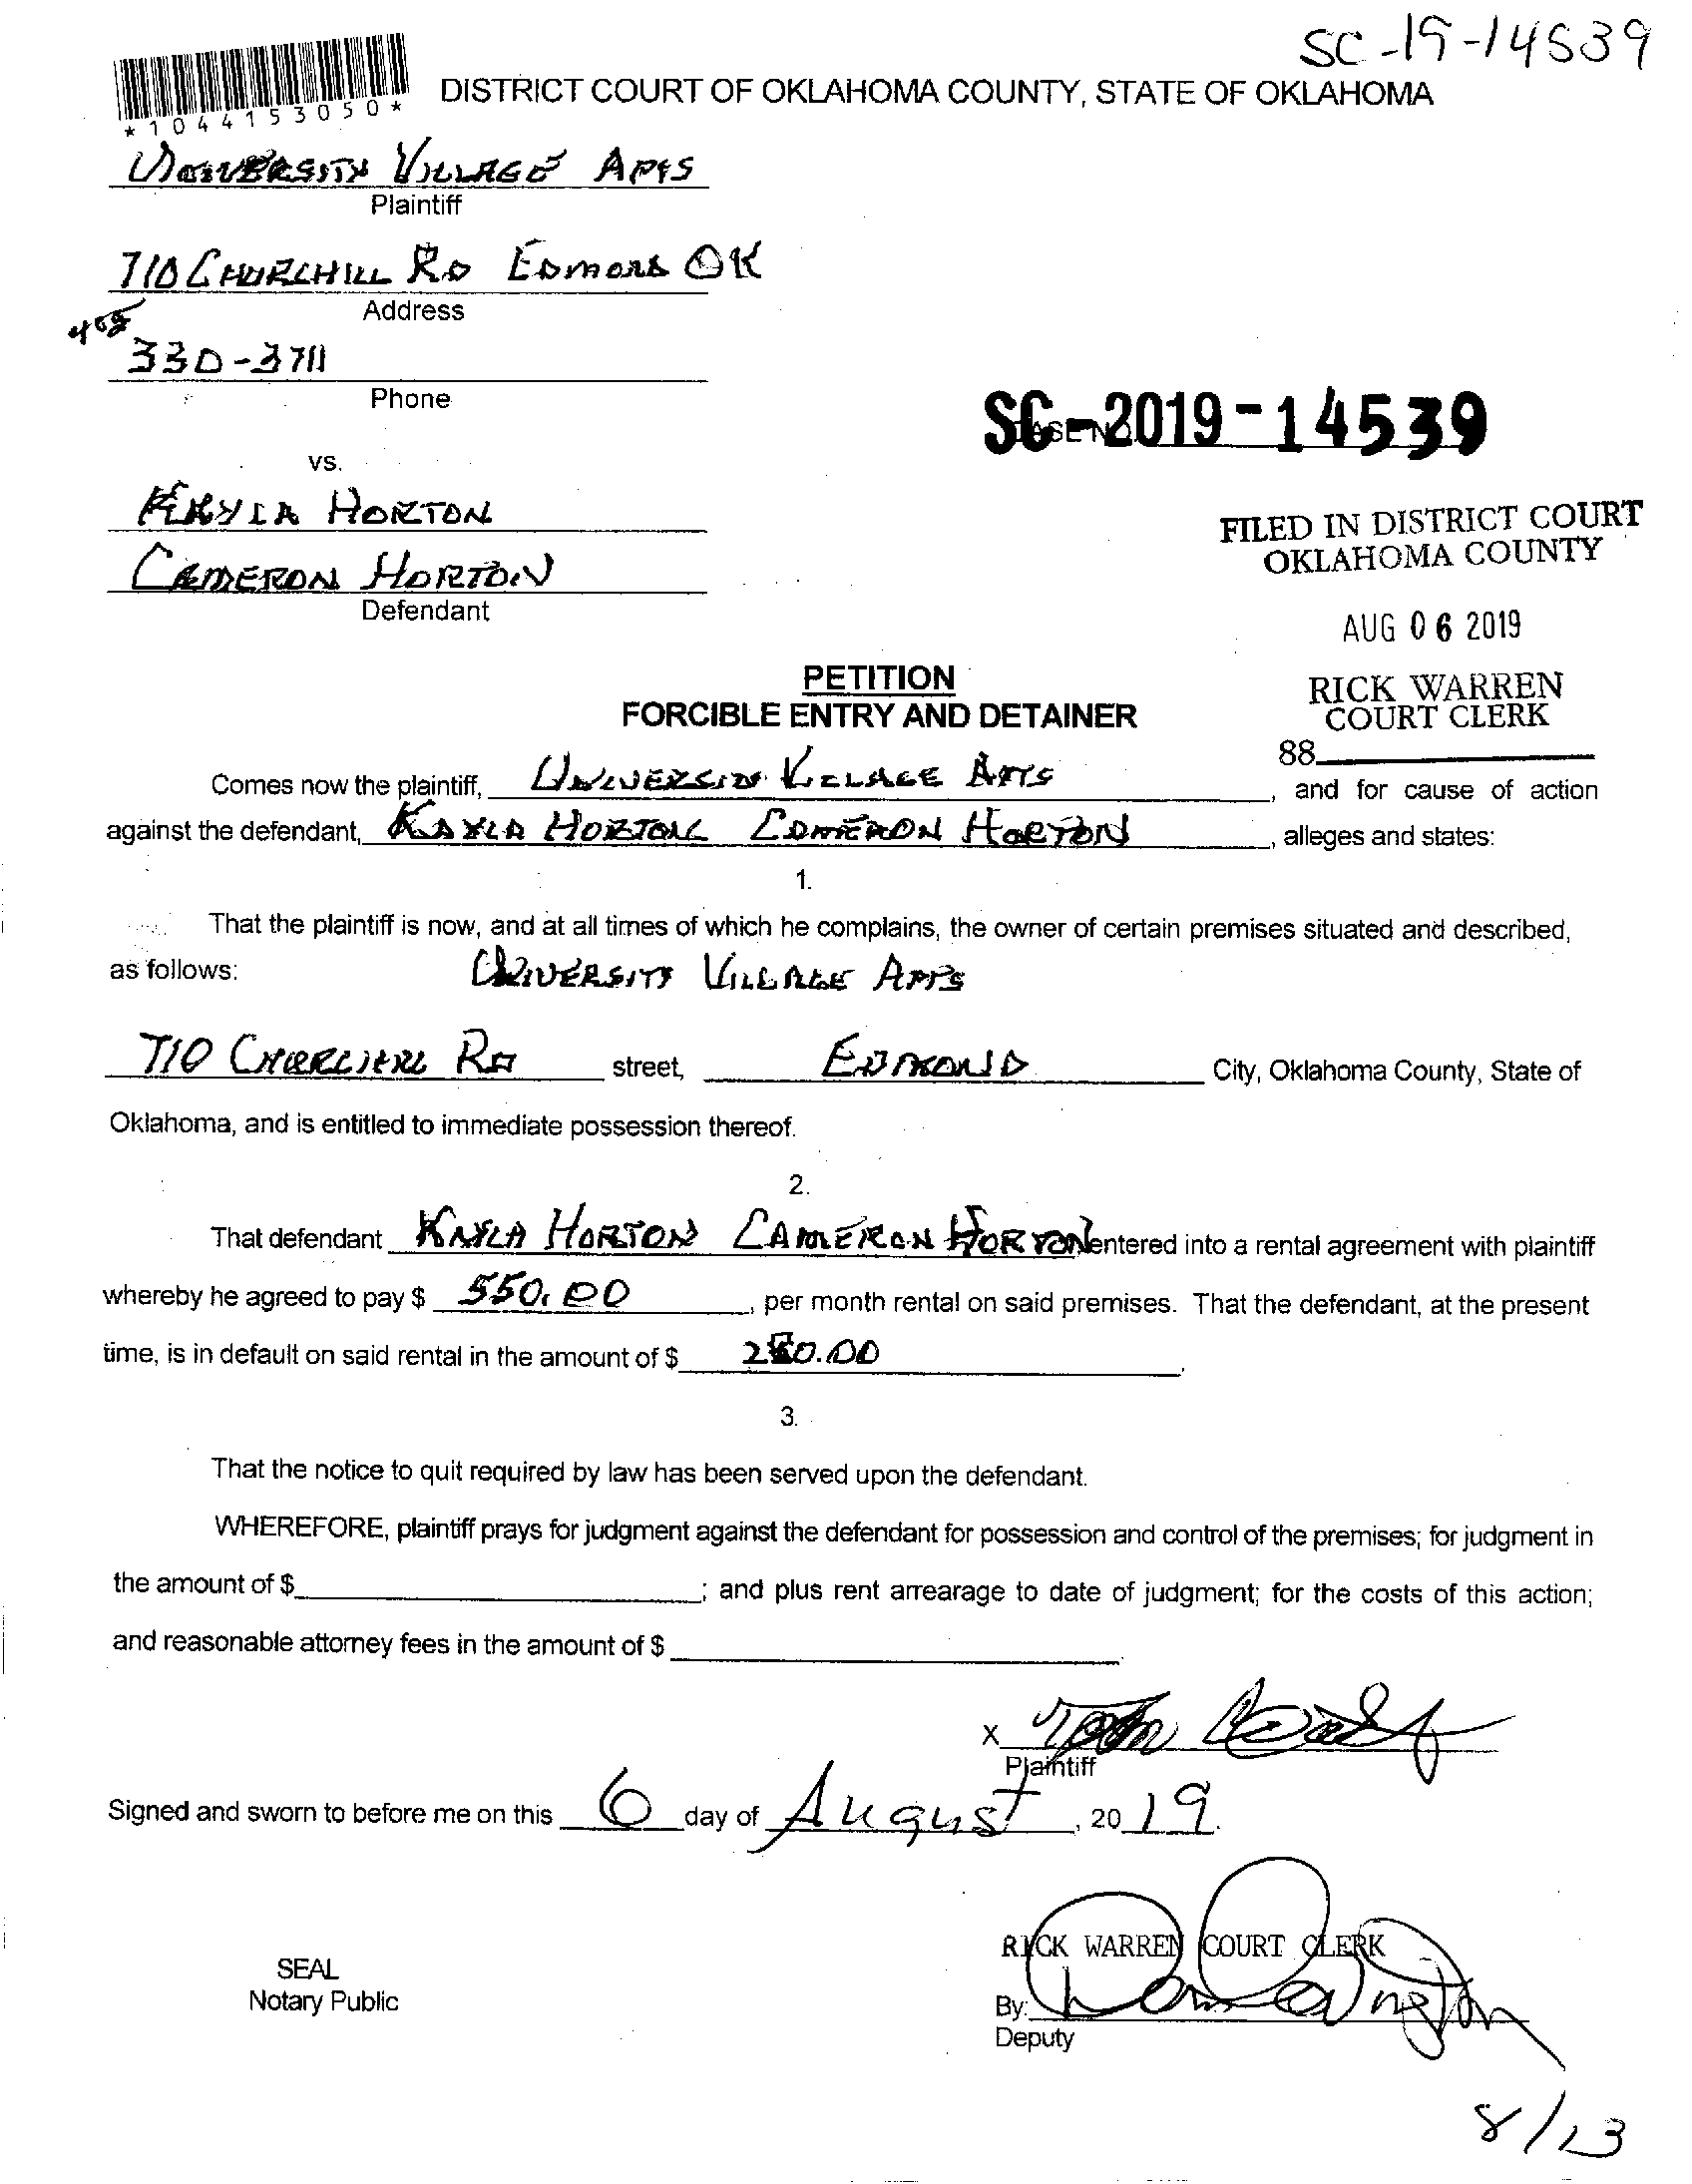 SC-19-14539
DISTRICT COURT OF OKLAHOMA COUNTY, STATE OF OKLAHOMA
*1044153050*
UNIVERSITY VILLAGE APTS
Plaintiff
710 CHURCHILL RD EDMOND OK
Address
405
330-3711
Phone
SC-2019-14539
vs.
KAYLA HORTON
CAMERON HORTON
Defendant
FILED IN DISTRICT COURT
OKLAHOMA COUNTY
AUG 06 2019
RICK WARREN
COURT CLERK
88
PETITION
FORCIBLE ENTRY AND DETAINER
Comes now the plaintiff, UNIVERSITY VILLAGE APTS, and for cause of action
against the defendant, KAYLA HORTON CAMERON HORTON, alleges and states:
1.
That the plaintiff is now, and at all times of which he complains, the owner of certain premises situated and described,
as follows: UNIVERSITY VILLAGE APTS
710 CHURCHILL RD street, EDMOND City, Oklahoma County, State of
Oklahoma, and is entitled to immediate possession thereof.
2.
That defendant KAYLA HORTON CAMERON HORTON entered into a rental agreement with plaintiff
whereby he agreed to pay $ 550.00, per month rental on said premises. That the defendant, at the present
time, is in default on said rental in the amount of $
3.
That the notice to quit required by law has been served upon the defendant.
WHEREFORE, plaintiff prays for judgment against the defendant for possession and control of the premises; for judgment in
the amount of $; and plus rent arrearage to date of judgment; for the costs of this action;
and reasonable attorney fees in the amount of $
X
Plaintiff
Signed and sworn to before me on this 6 day of August, 2019.
RICK WARREN COURT CLERK
SEAL
Notary Public
By:
Deputy
8/13